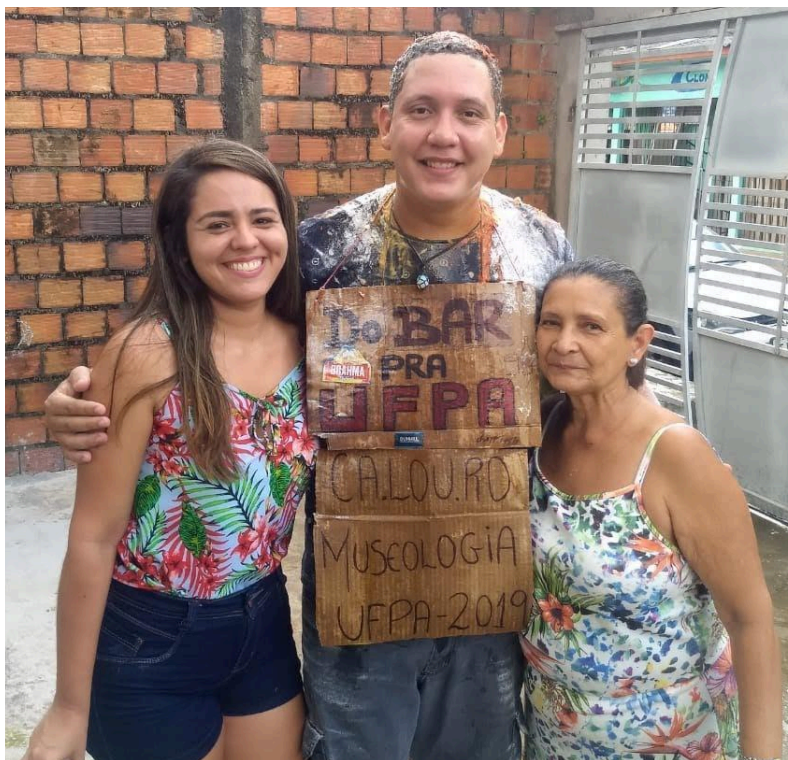 DO BAR
BRAHMA
PRA
UFPA
CA.LOU.RO
MUSEOLOGIA
UFPA-2019